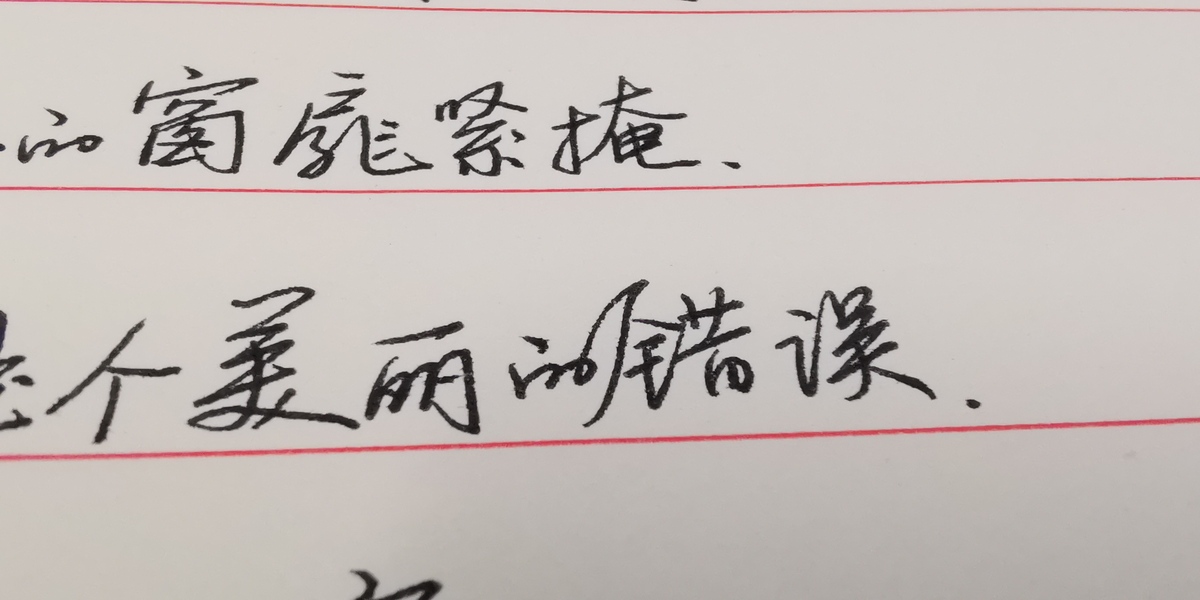 的窗扉紧掩、
个美丽的错误.